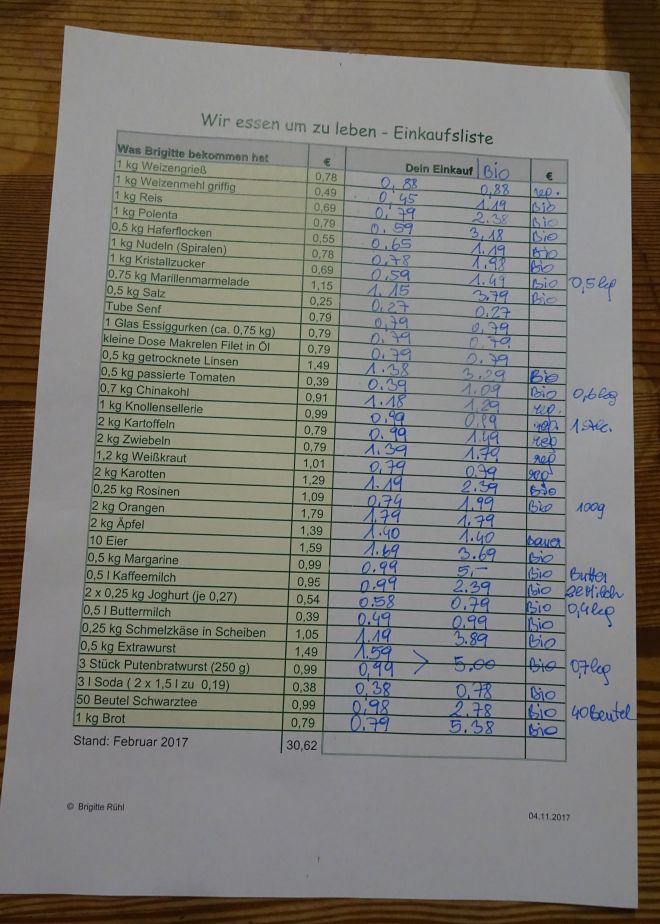 Wir essen um zu leben - Einkaufsliste
Was Brigitte bekommen hat € Dein Einkauf | Bio €
1 kg Weizengrieß 0,78 0,88 0,88 reg.
1 kg Weizenmehl griffig 0,49 0,45 1.19 Bio
1 kg Reis 0,69 0,79 2.38 Bio
1 kg Polenta 0,79 0.59 3,18 Bio
0,5 kg Haferflocken 0,55 0.65 1.19 Bio
1 kg Nudeln (Spiralen) 0,78 0.78 1,98 Bio
1 kg Kristallzucker 0,69 0.59 1.49 Bio 0,5 kg
0,75 kg Marillenmarmelade 1,15 1.15 3.79 Bio
0,5 kg Salz 0,25 0.27 0.27
Tube Senf 0,79 0,79 0,79
1 Glas Essiggurken (ca. 0,75 kg) 0,79 0.79 0.79
kleine Dose Makrelen Filet in Öl 0,79 0.79 0.79
0,5 kg getrocknete Linsen 1,49 1.38 3.29 Bio
0,5 kg passierte Tomaten 0,39 0.39 1.09 Bio 0,6 kg
0,7 kg Chinakohl 0,91 1.18 1.29 reg.
1 kg Knollensellerie 0,99 0.99 0.89 reg. 1 Stk.
2 kg Kartoffeln 0,79 0.99 1.49 reg
2 kg Zwiebeln 0,79 1.39 1.79 reg
1,2 kg Weißkraut 1,01 0.79 0.79 reg
2 kg Karotten 1,29 1.19 2.39 Bio
0,25 kg Rosinen 1,09 0,74 1.99 Bio 100g
2 kg Orangen 1,79 1,79 1.79
2 kg Äpfel 1,39 1.40 1.40 Bauer
10 Eier 1,59 1.69 3.69 Bio
0,5 kg Margarine 0,99 0.99 5,- Bio Butter
0,5 l Kaffeemilch 0,95 0.99 2.39 Bio Milch
2 x 0,25 kg Joghurt (je 0,27) 0,54 0.58 0.79 Bio 0,4 kg
0,5 l Buttermilch 0,39 0.49 0.99 Bio
0,25 kg Schmelzkäse in Scheiben 1,05 1.19 3.89 Bio
0,5 kg Extrawurst 1,49 1.59
3 Stück Putenbratwurst (250 g) 0,99 0,99 > 5.00 Bio 0,7 kg
3 l Soda ( 2 x 1,5 l zu 0,19) 0,38 0,38 0.78 Bio
50 Beutel Schwarztee 0,99 0,98 2.78 Bio 40 Beutel
1 kg Brot 0,79 0.79 5.38 Bio
Stand: Februar 2017 30,62
© Brigitte Rühl 04.11.2017